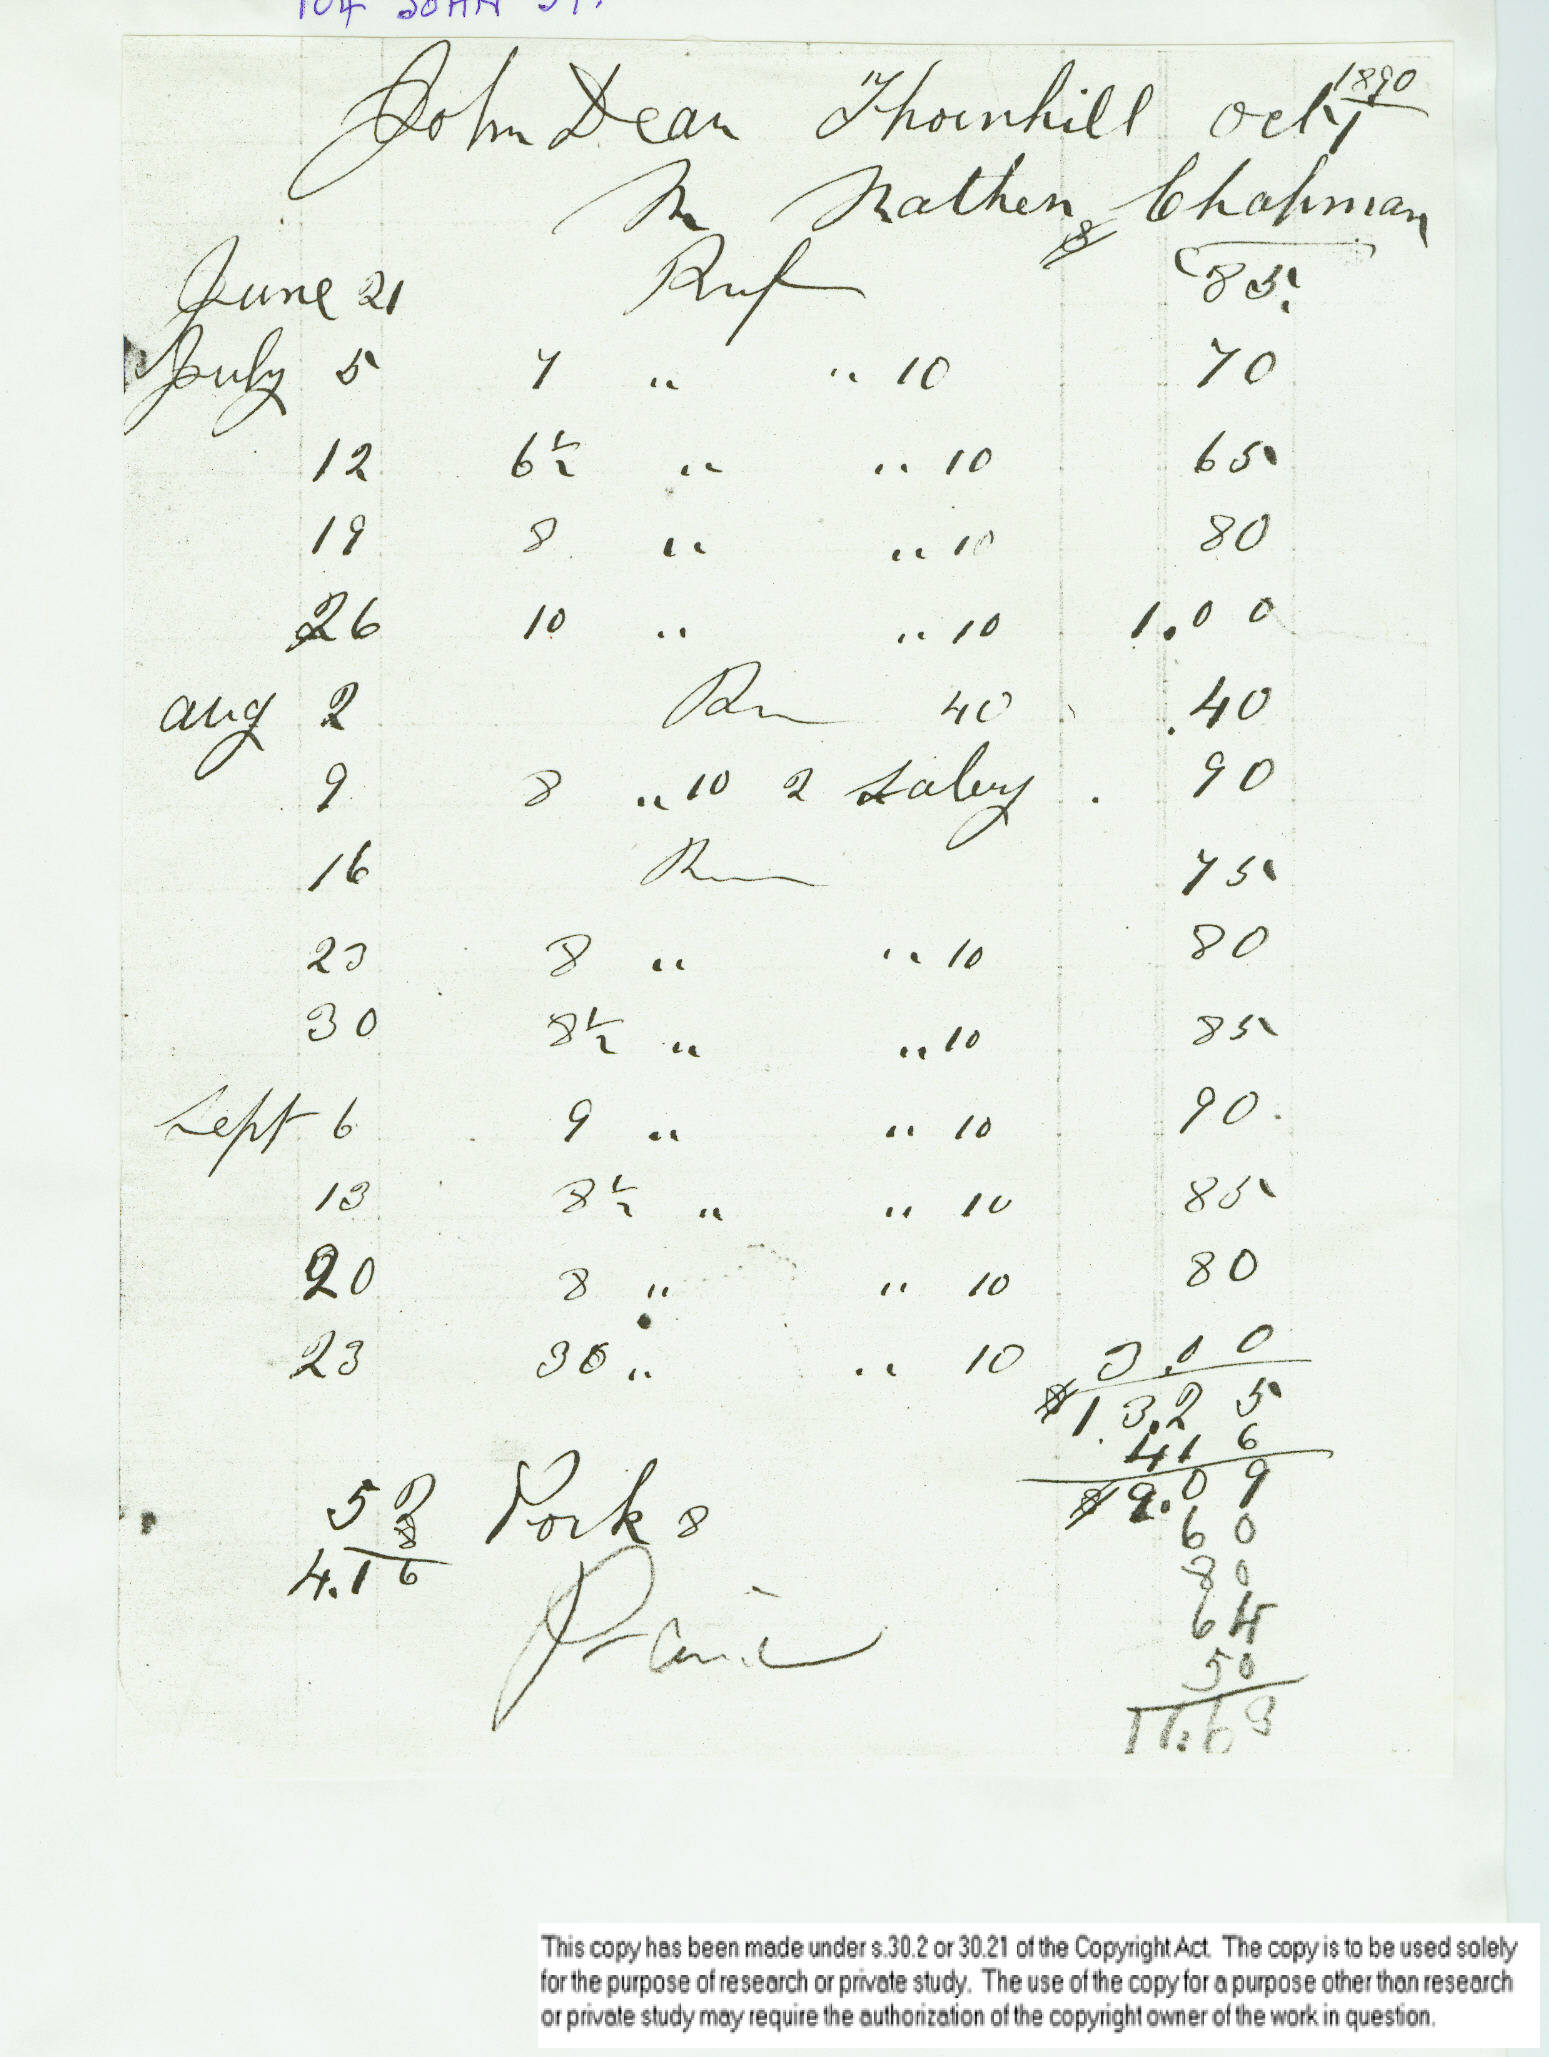 104 JOHN ST.
John Dean Thornhill Oct 1 1890
Mr Nathen Chapman
$
June 21 85
July 5 7 " " 10 70
12 6½ " " 10 65
19 8 " " 10 80
26 10 " " 10 1.00
Aug 2 40 .40
9 8 " 10 2 90
16 75
23 8 " " 10 80
30 8½ " " 10 85
Sept 6 9 " " 10 90
13 8½ " " 10 85
20 8 " " 10 80
23 30 " " 10 3.00
$13.25
4.16
$9.09
52 Pork 8
8
4.16
60
80
64
50
11.63
This copy has been made under s.30.2 or 30.21 of the Copyright Act. The copy is to be used solely
for the purpose of research or private study. The use of the copy for a purpose other than research
or private study may require the authorization of the copyright owner of the work in question.